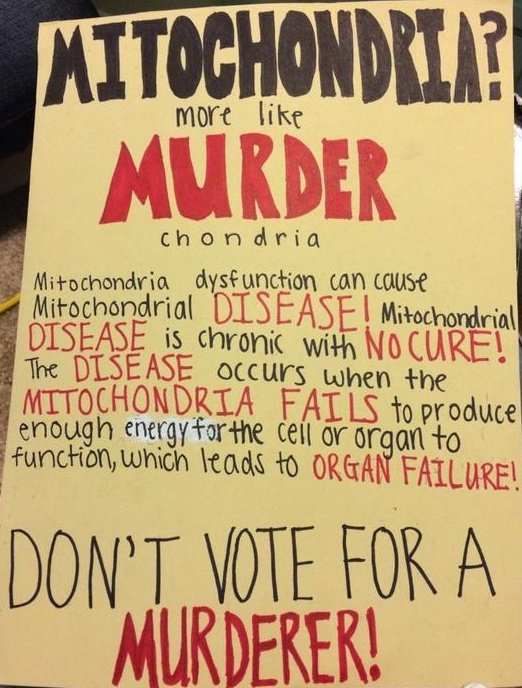 MITOCHONDRIA?
more like
MURDER
chondria
Mitochondria dysfunction can cause
Mitochondrial DISEASE! Mitochondrial
DISEASE is chronic with NO CURE!
The DISEASE occurs when the
MITOCHONDRIA FAILS to produce
enough energy for the cell or organ to
function, which leads to ORGAN FAILURE!
DON'T VOTE FOR A
MURDERER!